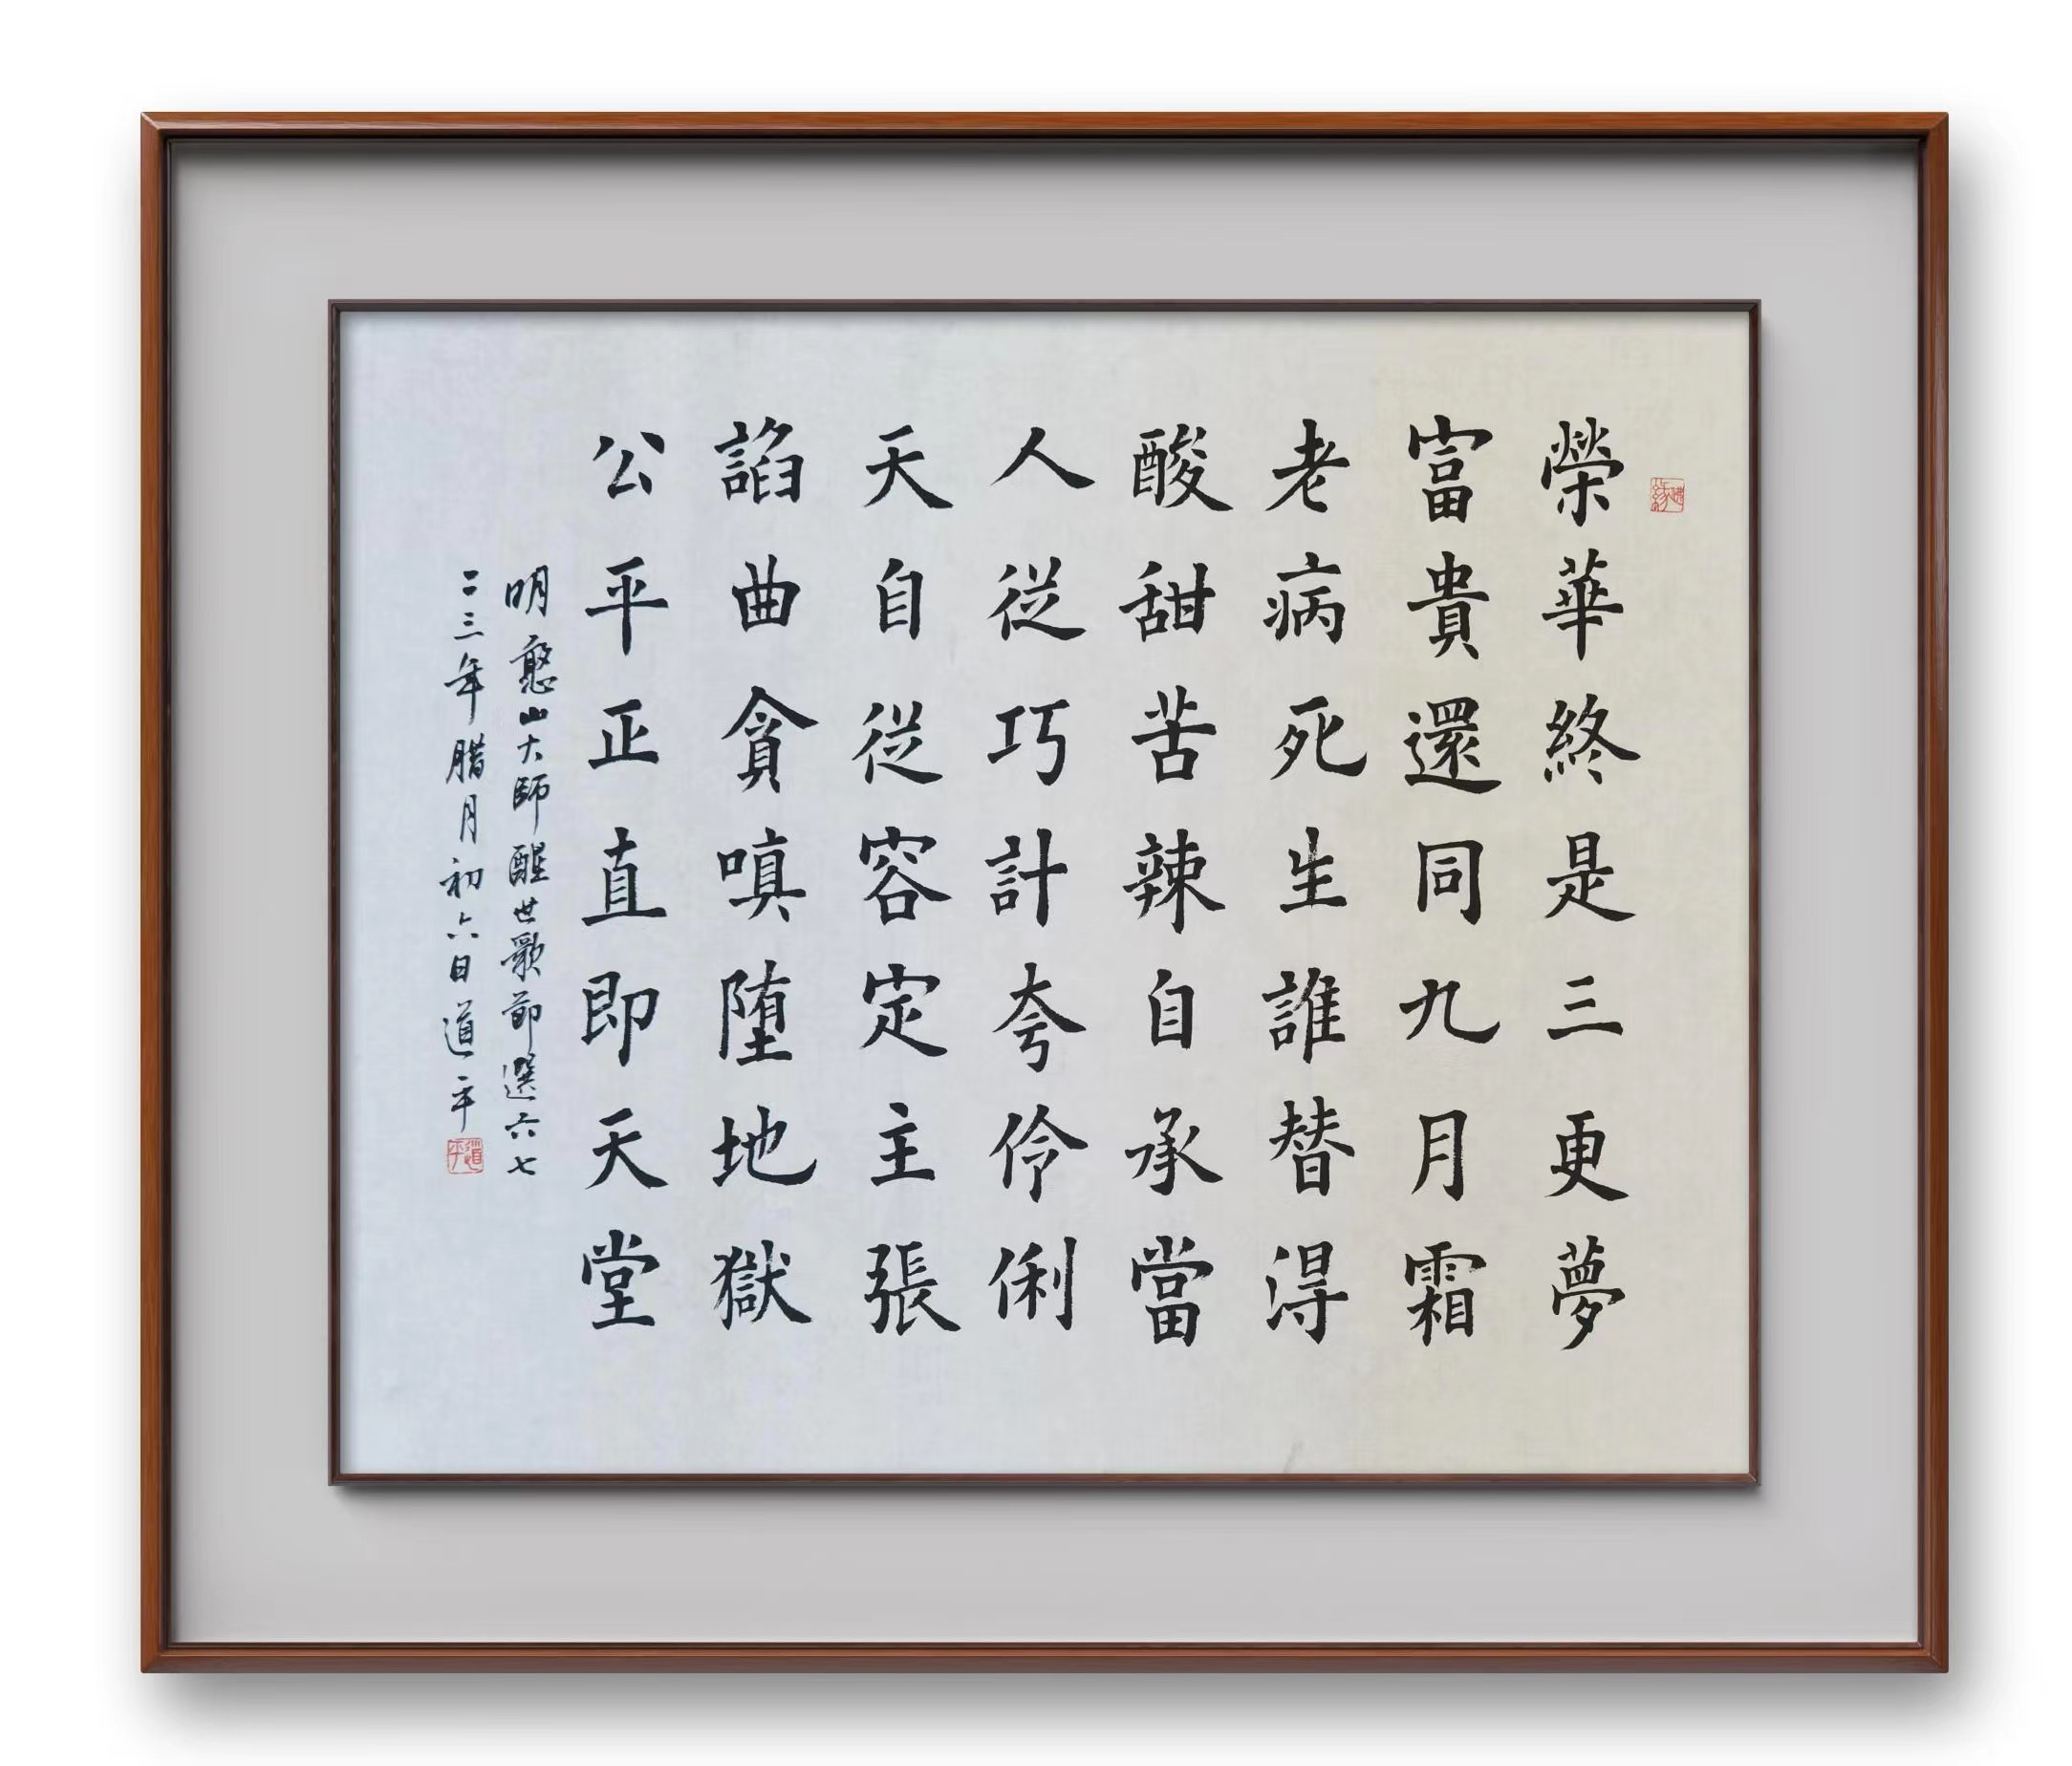 榮華終是三更夢
富貴還同九月霜
老病死生誰替得
酸甜苦辣自承當
人從巧計夸伶俐
天自從容定主張
諂曲貪嗔墮地獄
公平正直即天堂
明憨山大師醒世歌節選六七
二三年腊月初六日道平
道平